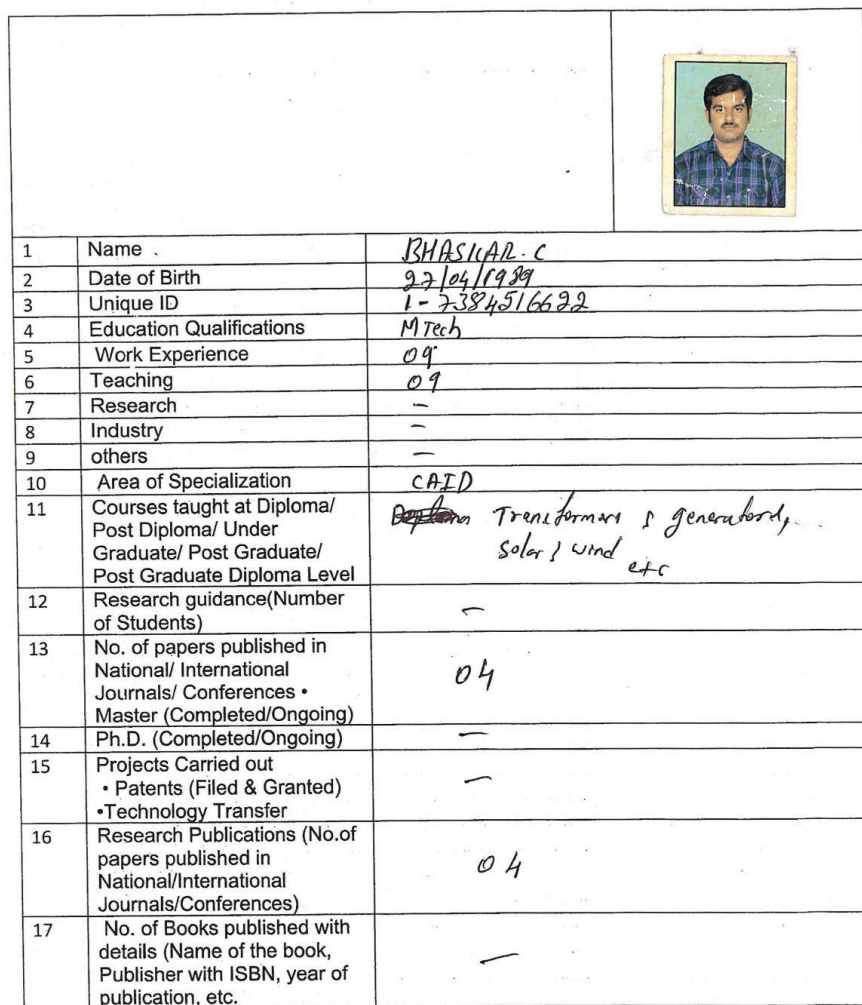 1 Name . BHASKAR. C
2 Date of Birth 27/04/1989
3 Unique ID 1-7384516622
4 Education Qualifications MTech
5 Work Experience 09
6 Teaching 09
7 Research –
8 Industry –
9 others –
10 Area of Specialization CAID
11 Courses taught at Diploma/ Transformers & generators,
Post Diploma/ Under solar & wind
Graduate/ Post Graduate/ etc
Post Graduate Diploma Level
12 Research guidance(Number –
of Students)
13 No. of papers published in
National/ International 04
Journals/ Conferences •
Master (Completed/Ongoing)
14 Ph.D. (Completed/Ongoing) –
15 Projects Carried out
• Patents (Filed & Granted) –
•Technology Transfer
16 Research Publications (No.of
papers published in 04
National/International
Journals/Conferences)
17 No. of Books published with
details (Name of the book, –
Publisher with ISBN, year of
publication, etc.